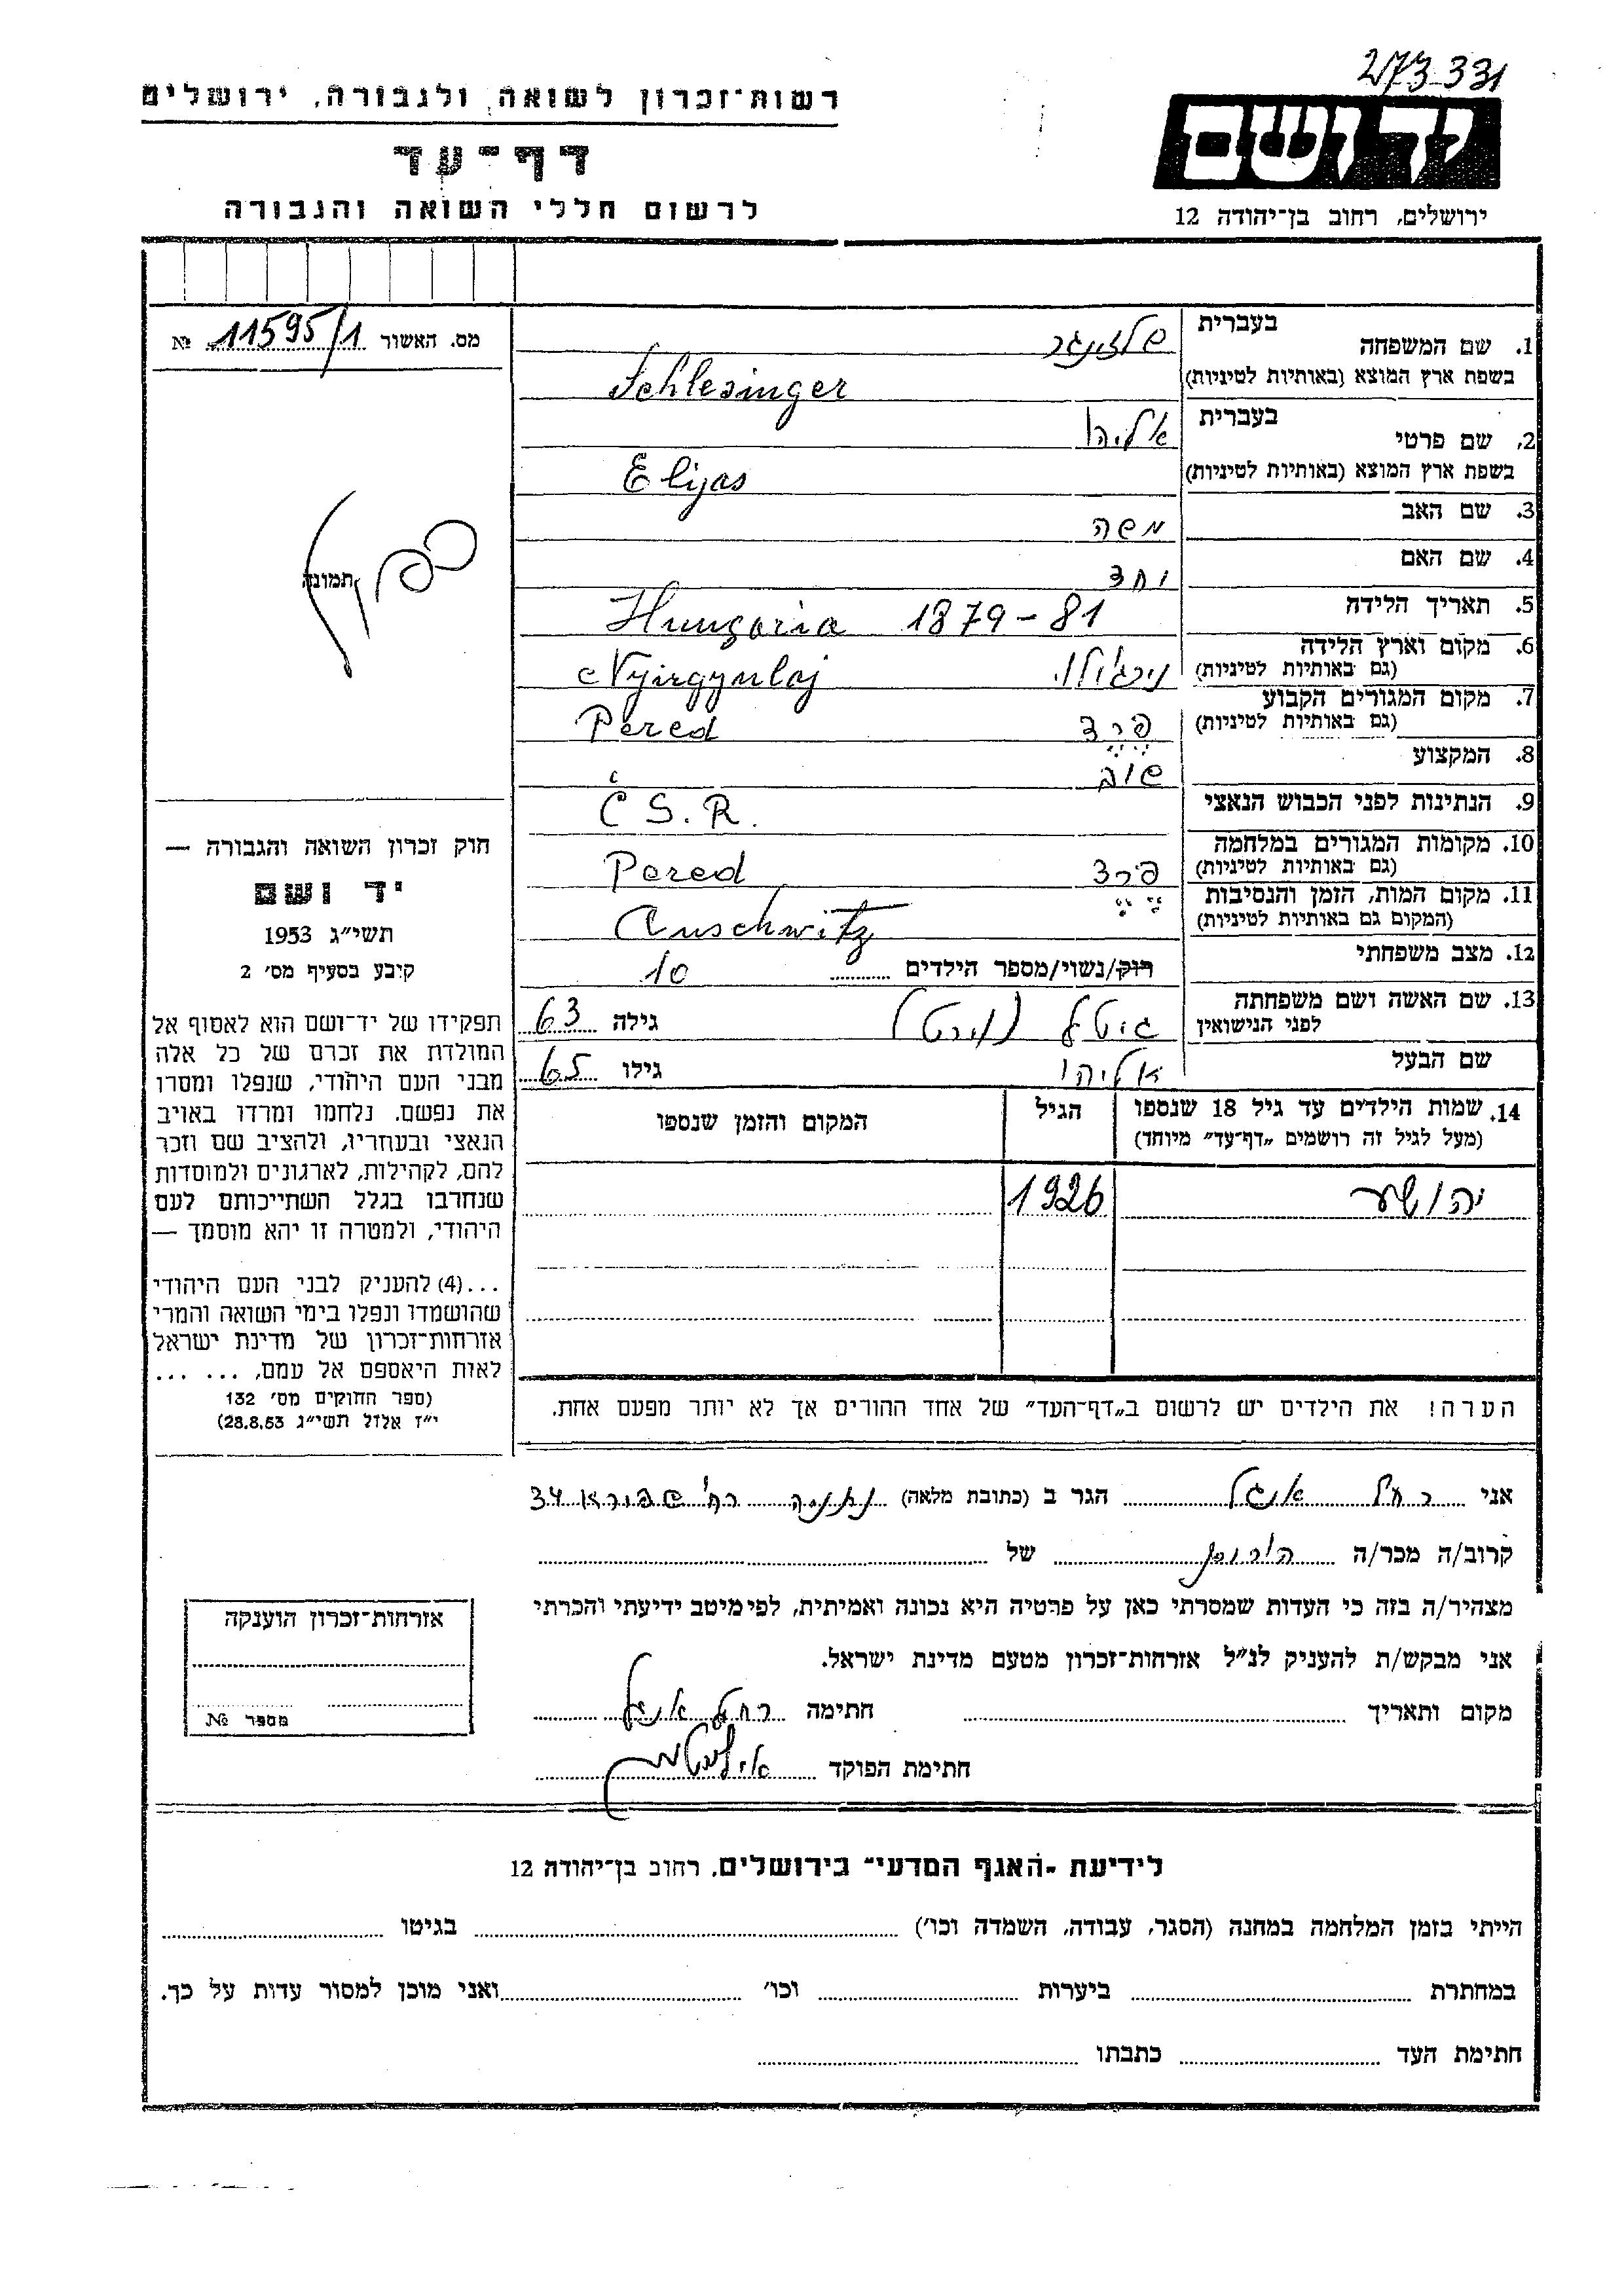 273-331
יד ושם
ירושלים, רחוב בן־יהודה 12
רשות־זכרון לשואה ולגבורה, ירושלים
דף־עד
לרשום חללי השואה והגבורה
מס. האשור 11595/1 №
תמונה
1. שם המשפחה בעברית שלזינגר
בשפת ארץ המוצא (באותיות לטיניות) Schlesinger
2. שם פרטי בעברית אליהו
בשפת ארץ המוצא (באותיות לטיניות) Elijas
3. שם האב משה
4. שם האם
5. תאריך הלידה Hungaria 1879-81
6. מקום וארץ הלידה
(גם באותיות לטיניות) Nyirgyulaj
7. מקום המגורים הקבוע
(גם באותיות לטיניות) פרד Pered
8. המקצוע שוב
9. הנתינות לפני הכבוש הנאצי Č S. R.
10. מקומות המגורים במלחמה
(גם באותיות לטיניות) פרד Pered
11. מקום המות, הזמן והנסיבות
(המקום גם באותיות לטיניות) Auschwitz
12. מצב משפחתי רוק/נשוי/מספר הילדים 10
13. שם האשה ושם משפחתה
לפני הנישואין גיטל גילה 63
שם הבעל אליהו גילו 65
14. שמות הילדים עד גיל 18 שנספו הגיל המקום והזמן שנספו
(מעל לגיל זה רושמים „דף־עד” מיוחד)
יהושע 1926
הערה! את הילדים יש לרשום ב„דף־העד” של אחד ההורים אך לא יותר מפעם אחת.
חוק זכרון השואה והגבורה —
יד ושם
תשי״ג 1953
קיבע בסעיף מס׳ 2
תפקידו של יד־ושם הוא לאסוף אל
המולדת את זכרם של כל אלה
מבני העם היהודי, שנפלו ומסרו
את נפשם. נלחמו ומרדו באויב
הנאצי ובעוזריו, ולהציב שם וזכר
להם, לקהילות, לארגונים ולמוסדות
שנחרבו בגלל השתייכותם לעם
היהודי, ולמטרה זו יהא מוסמך —
...(4) להעניק לבני העם היהודי
שהושמדו ונפלו בימי השואה והמרי
אזרחות־זכרון של מדינת ישראל
לאות היאספם אל עמם, ... ...
(ספר החוקים מס׳ 132
י״ז אלול תשי״ג 28.8.53)
אני רחל אנגל הגר ב (כתובת מלאה) נתניה רח' שפירא 34
קרוב/ה מכר/ה של
מצהיר/ה בזה כי העדות שמסרתי כאן על פרטיה היא נכונה ואמיתית, לפי מיטב ידיעתי והכרתי
אני מבקש/ת להעניק לנ״ל אזרחות־זכרון מטעם מדינת ישראל.
מקום ותאריך חתימה רחל אנגל
חתימת הפוקד
אזרחות־זכרון הוענקה
מספר №
לידיעת „האגף המדעי” בירושלים, רחוב בן־יהודה 12
הייתי בזמן המלחמה במחנה (הסגר, עבודה, השמדה וכו׳) בגיטו
במחתרת ביערות וכו׳ ואני מוכן למסור עדות על כך.
חתימת העד כתבתו